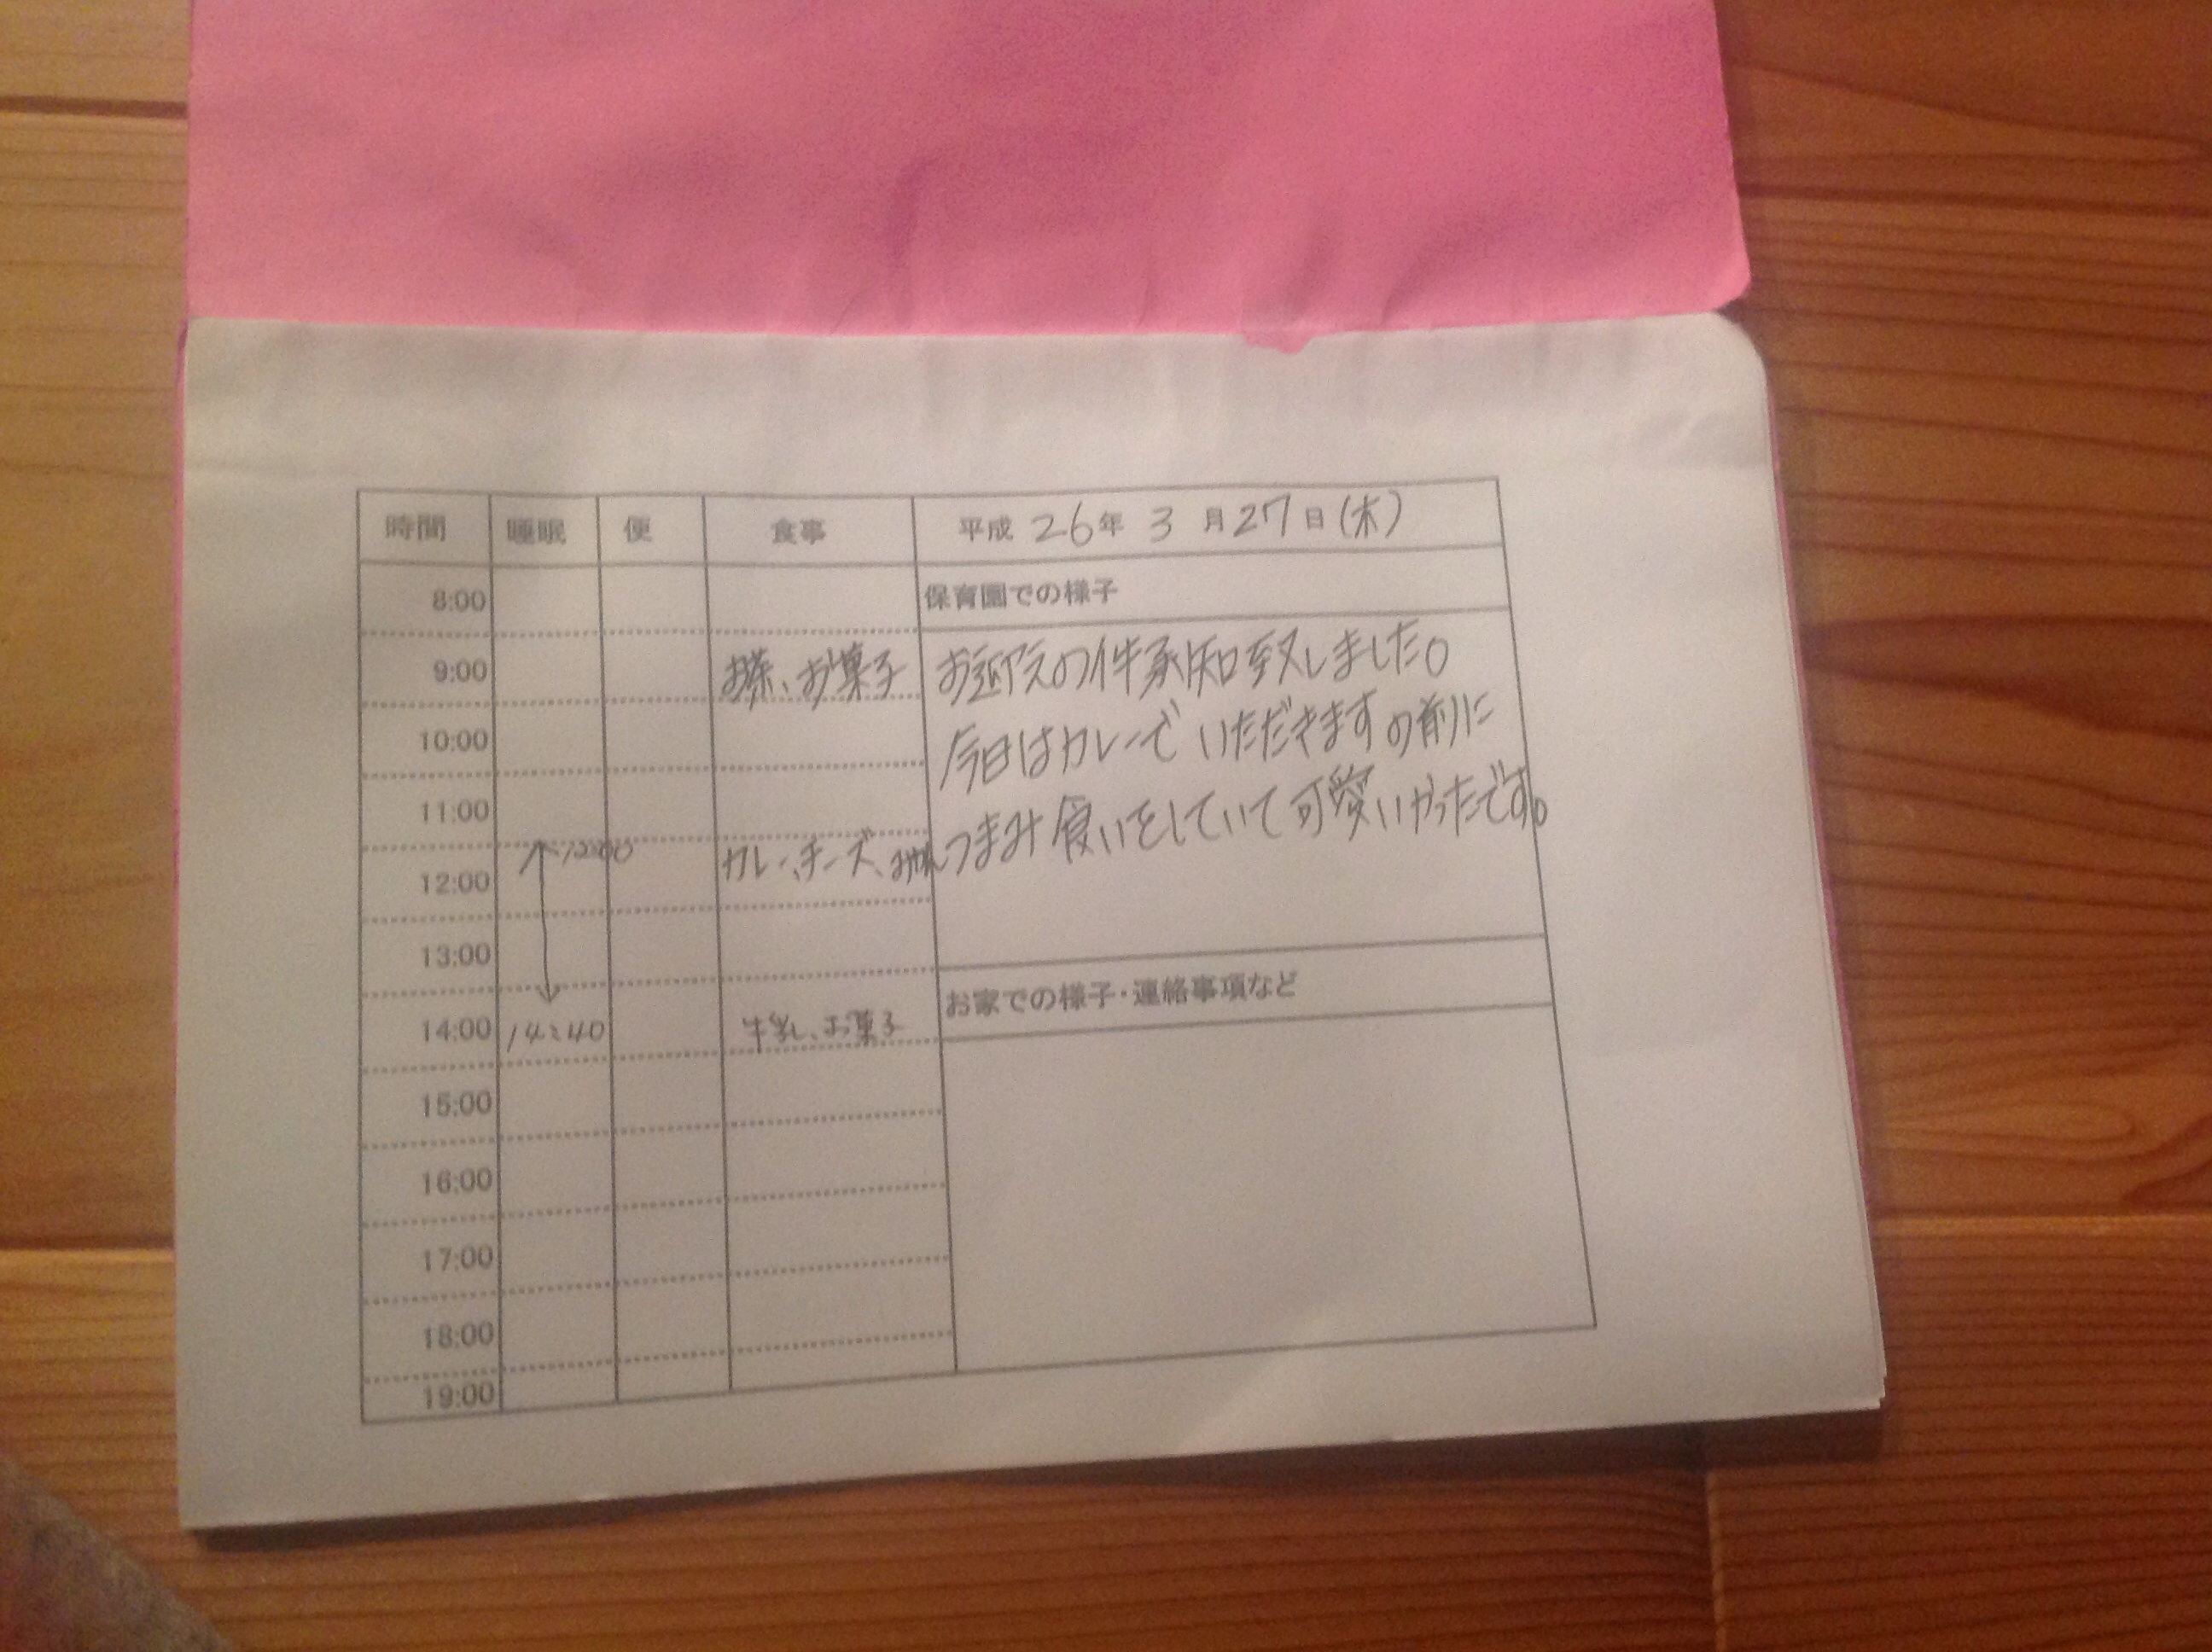 時間 睡眠 便 食事 平成 26年 3月27日(木)
8:00 保育園での様子
9:00 お茶、お菓子 お迎えの件承知致しました。
10:00 今日はカレーで いただきますの前に
11:00 つまみ食いをしていて可愛いかったです。
12:00 12:00 カレー、チーズ、みかん
13:00
お家での様子・連絡事項など
14:00 14:40 牛乳、お菓子
15:00
16:00
17:00
18:00
19:00